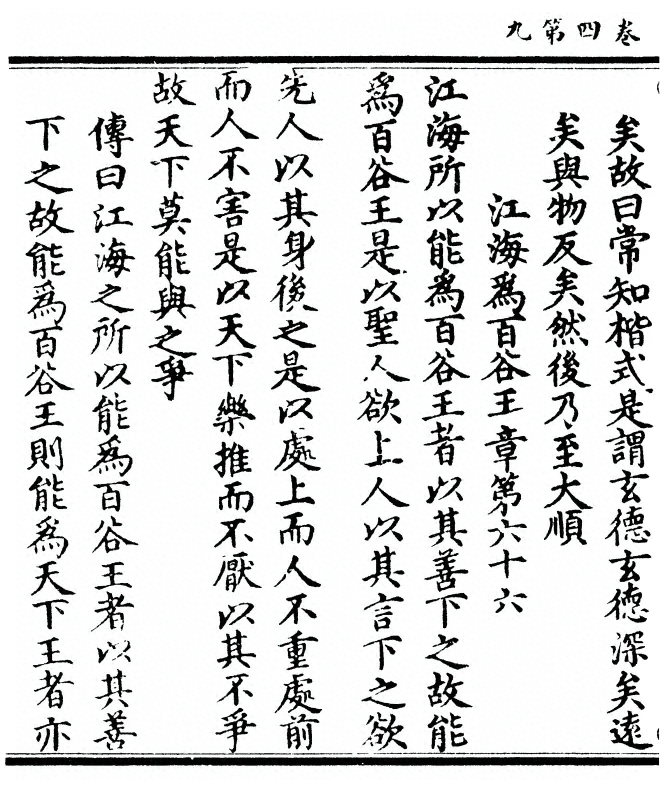 卷四第九
矣故曰常知楷式是謂玄德玄德深矣遠
矣與物反矣然後乃至大順
江海爲百谷王章第六十六
江海所以能爲百谷王者以其善下之故能
爲百谷王是以聖人欲上人以其言下之欲
先人以其身後之是以處上而人不重處前
而人不害是以天下樂推而不厭以其不爭
故天下莫能與之爭
傳曰江海之所以能爲百谷王者以其善
下之故能爲百谷王則能爲天下王者亦